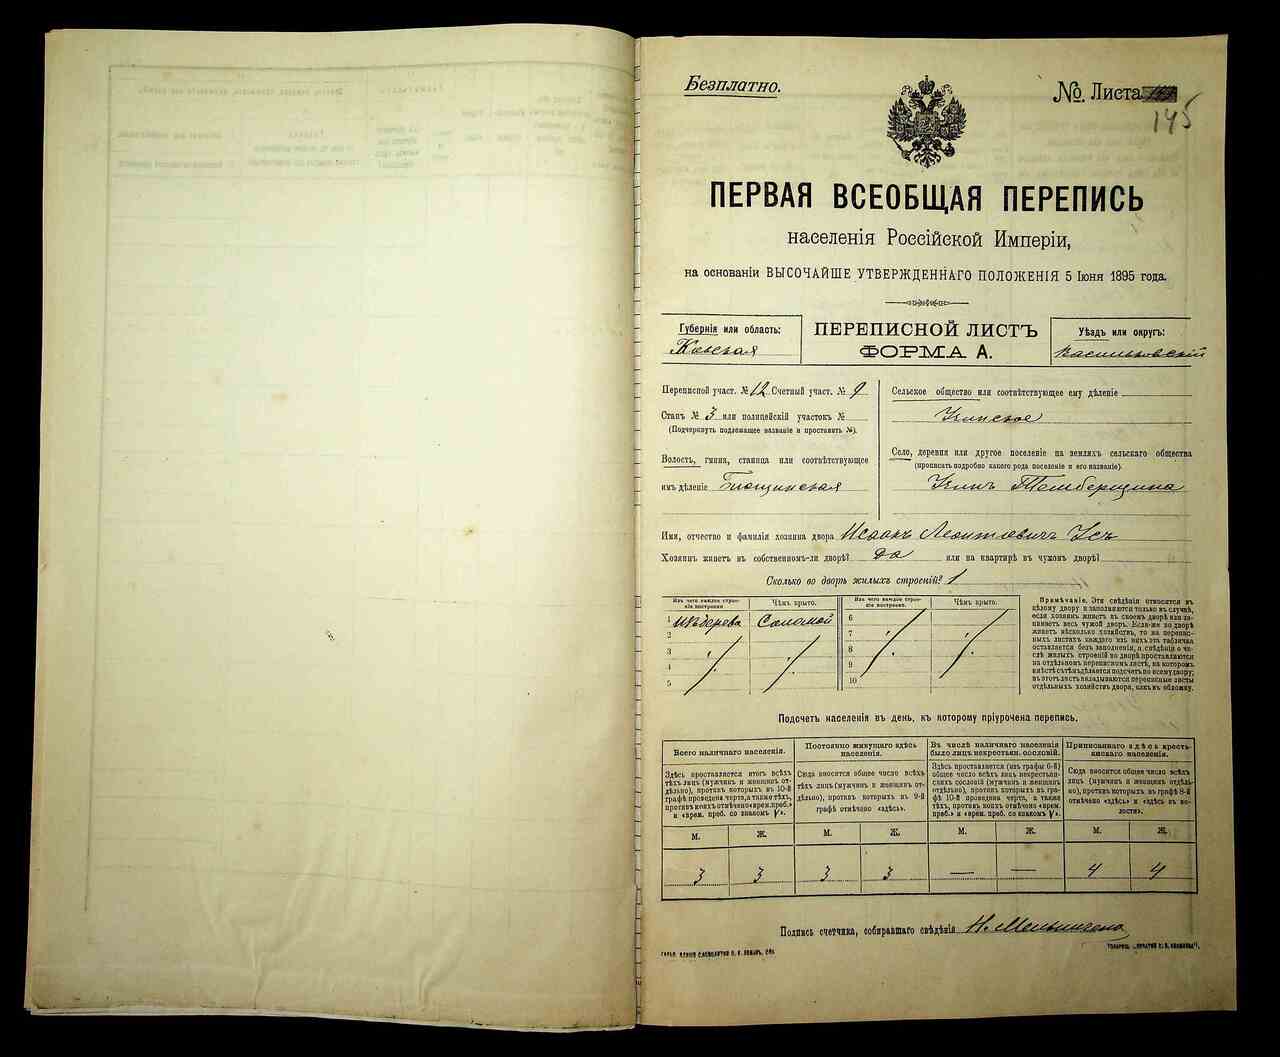 Безплатно.
№ Листа
145
ПЕРВАЯ ВСЕОБЩАЯ ПЕРЕПИСЬ
населенія Россійской Имперіи,
на основаніи ВЫСОЧАЙШЕ УТВЕРЖДЕННАГО ПОЛОЖЕНІЯ 5 Іюня 1895 года.
Губернія или область:
Кіевская
ПЕРЕПИСНОЙ ЛИСТЪ
ФОРМА А.
Уѣздъ или округъ:
Васильковскій
Переписной участ. № 12 Счетный участ. № 9
Станъ № 3 или полицейскій участокъ №
(Подчеркнуть подлежащее названіе и проставить №).
Волость, гмина, станица или соотвѣтствующее
имъ дѣленіе
Сельское общество или соотвѣтствующее ему дѣленіе
Село, деревня или другое поселеніе на земляхъ сельскаго общества
(прописать подробно какого рода поселеніе и его названіе).
Имя, отчество и фамилія хозяина двора Исаакъ Леонтовичъ Усъ
Хозяинъ живетъ въ собственномъ-ли дворѣ? да или на квартирѣ въ чужомъ дворѣ?
Сколько во дворѣ жилыхъ строеній? 1
Изъ чего каждое строеніе построено
Чѣмъ крыто.
Изъ чего каждое строеніе построено.
Чѣмъ крыто.
1 Изъ дерева Соломой
2
3
4
5
6
7
8
9
10
Примѣчаніе. Эти свѣдѣнія относятся къ
цѣлому двору и заполняются только въ случаѣ,
если хозяинъ живетъ въ своемъ дворѣ или занимаетъ
весь чужой дворъ. Если-же во дворѣ
живетъ нѣсколько хозяйствъ, то на переписныхъ
листахъ каждаго изъ нихъ эта табличка
оставляется безъ заполненія, а свѣдѣнія о числѣ
жилыхъ строеній во дворѣ проставляются
на отдѣльномъ переписномъ листѣ, на которомъ
вмѣстѣ съ тѣмъ дѣлается подсчетъ по всему двору;
въ этотъ листъ вкладываются переписные листы
отдѣльныхъ хозяйствъ двора, какъ въ обложку.
Подсчетъ населенія въ день, къ которому пріурочена перепись.
Всего наличнаго населенія.
Здѣсь проставляется итогъ всѣхъ
лицъ (мужчинъ и женщинъ отдѣльно),
противъ которыхъ въ 10-й
графѣ проведена черта, а также тѣхъ,
противъ коихъ отмѣчено «врем. преб.»
и «врем. преб. со знакомъ V».
Постоянно живущаго здѣсь
населенія.
Сюда вносится общее число всѣхъ
тѣхъ лицъ (мужчинъ и женщинъ отдѣльно),
противъ которыхъ въ 9-й
графѣ отмѣчено «здѣсь».
Въ числѣ наличнаго населенія
было лицъ некрестьян. сословій.
Здѣсь проставляется (изъ графы 6-й)
общее число всѣхъ лицъ некрестьянскихъ
сословій (мужчинъ и женщинъ
отдѣльно), противъ которыхъ въ графѣ
10-й проведена черта, а также
тѣхъ, противъ коихъ отмѣчено «врем.
преб.» и «врем. преб. со знакомъ V».
Приписаннаго здѣсь крестьянскаго
населенія.
Сюда вносится общее число всѣхъ
лицъ (мужчинъ и женщинъ отдѣльно),
противъ которыхъ въ графѣ 8-й
отмѣчено «здѣсь» и «здѣсь въ волости».
М. Ж. М. Ж. М. Ж. М. Ж.
3 3 3 3 — — 4 4
Подпись счетчика, собиравшаго свѣдѣнія